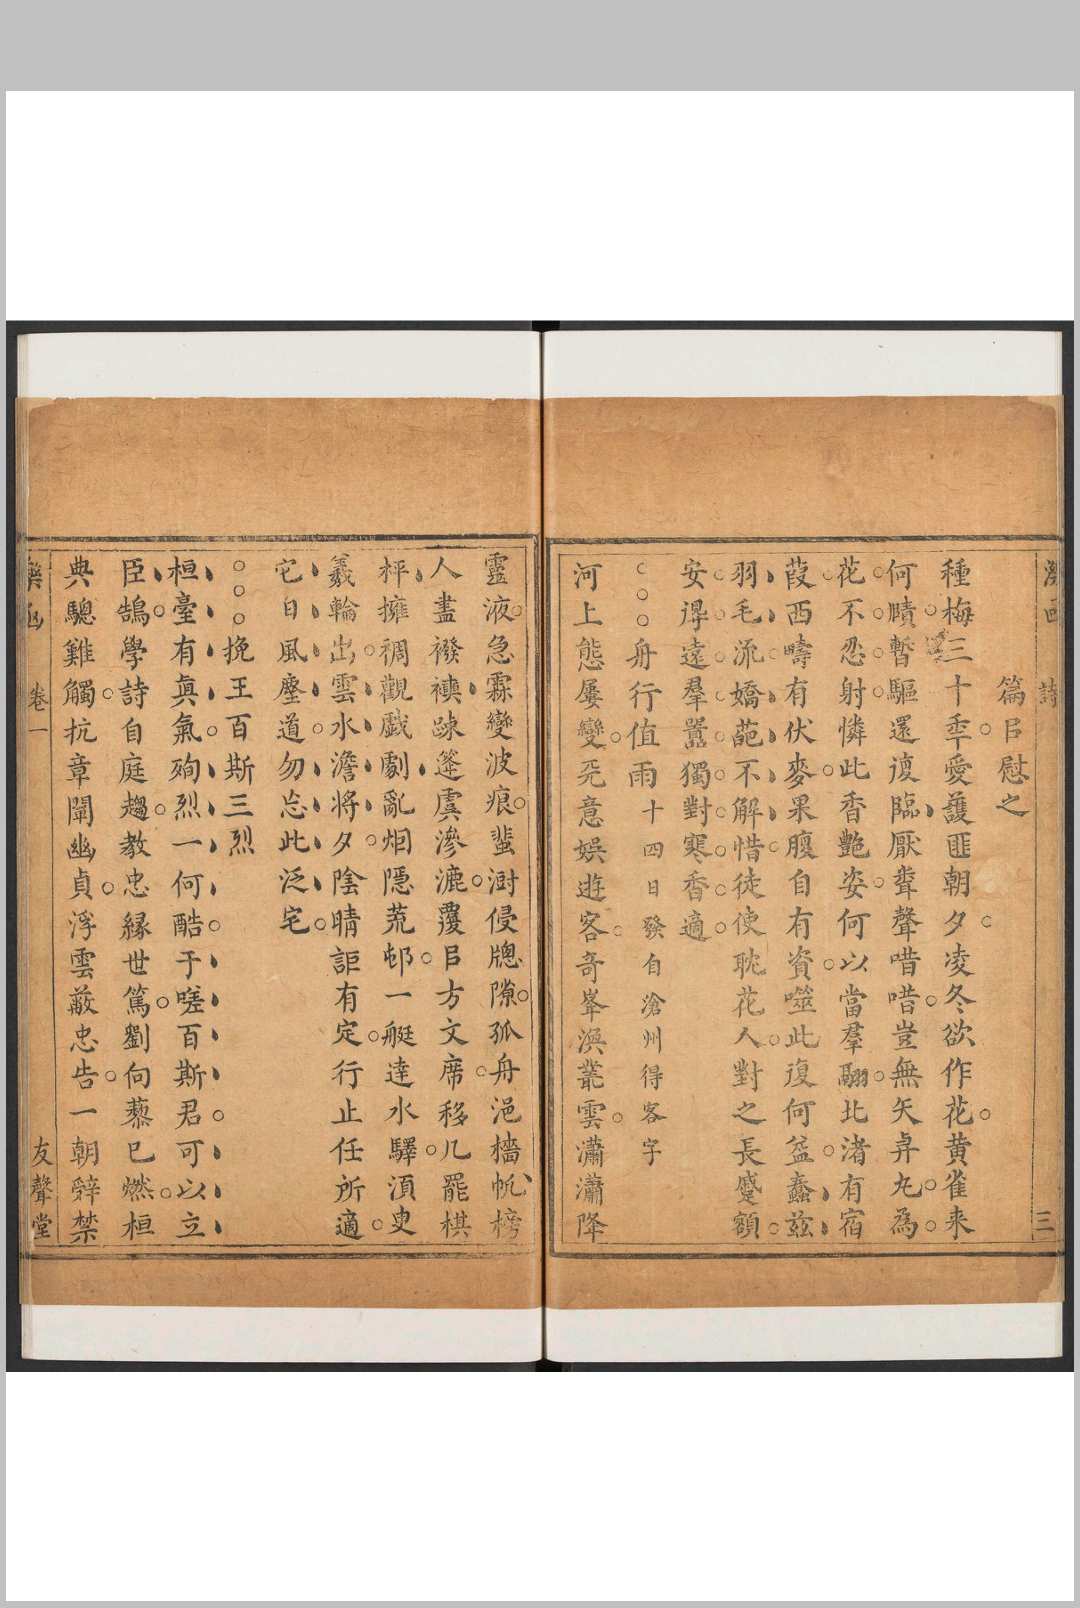 篇㠯慰之
種梅三十秊愛護匪朝夕凌冬欲作花黄雀来
何賾暫驅還復臨厭聋聲唶唶豈無矢弄丸為
花不忍射憐此香艷姿何以當羣翮北渚有宿
葭西疇有伏麥果腹自有資噬此復何益蠢茲
羽毛流嬌葩不解惜徒使耽花人對之長蹙額
安得遠羣囂獨對寒香適
舟行值雨十四日發自滄州得客字
河上態屢變旡意娯遊客奇峯渙叢雲瀟瀟降
靈液急霖變波痕蜚澍侵牕隙孤舟浥檣帆榜
人盡襏襫踈篷虞滲漉覆㠯方文席移几罷棋
枰擁裯觀戯劇亂烟隱荒邨一艇達水驛湏臾
羲輪出雲水澹將夕陰晴詎有定行止任所適
它日風塵道勿忘此泛宅
挽王百斯三烈
桓臺有眞氣殉烈一何酷于嗟百斯君可以立
臣鵠學詩自庭趨教忠緣世篤劉向藜已燃桓
典驄難觸抗章闡幽貞浮雲蔽忠告一朝辤禁
卷一
友聲堂
詩
三